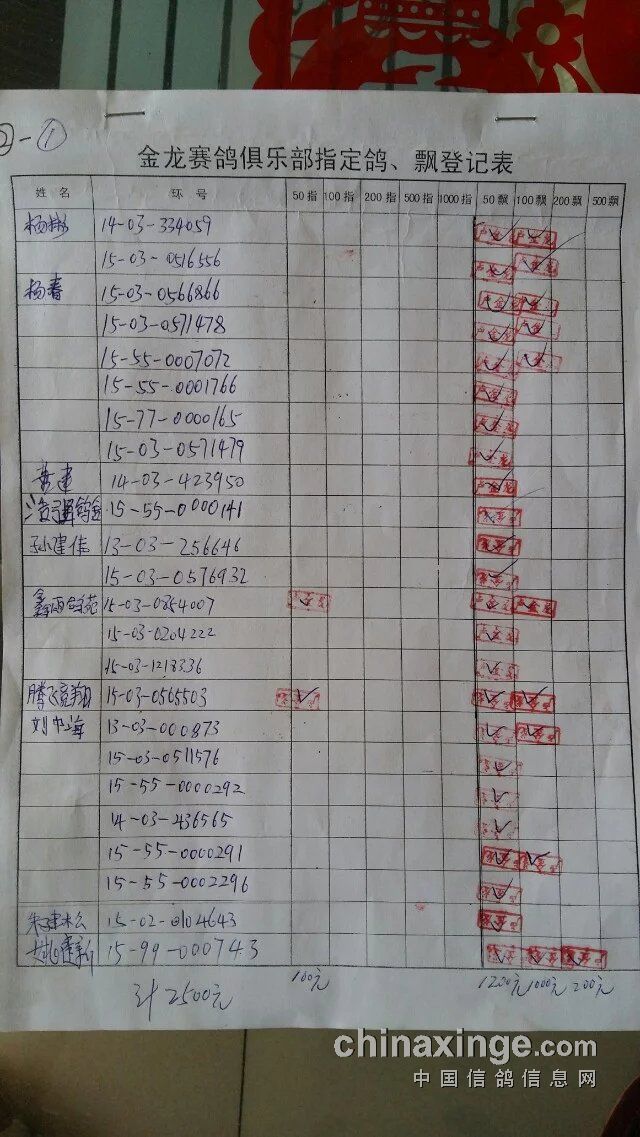 ②-①
金龙赛鸽俱乐部指定鸽、飘登记表
姓名 环号 50指 100指 200指 500指 1000指 50飘 100飘 200飘 500飘
14-03-334059
15-03-0516556
杨春 15-03-0566866
15-03-0571478
15-55-0007072
15-55-0001766
15-77-0000165
15-03-0571479
14-03-423950
15-55-0000141
孙建伟 13-03-256646
15-03-0576932
15-03-0854007
15-03-0204222
15-03-1218336
腾飞竞翔 15-03-0565503
刘中海 13-03-000873
15-03-0511576
15-55-0000292
14-03-436565
15-55-0000291
15-55-0002296
15-02-0104643
15-99-000743
计2500元 100元 1200元 1000元 200元
chinaxinge.com
中国信鸽信息网